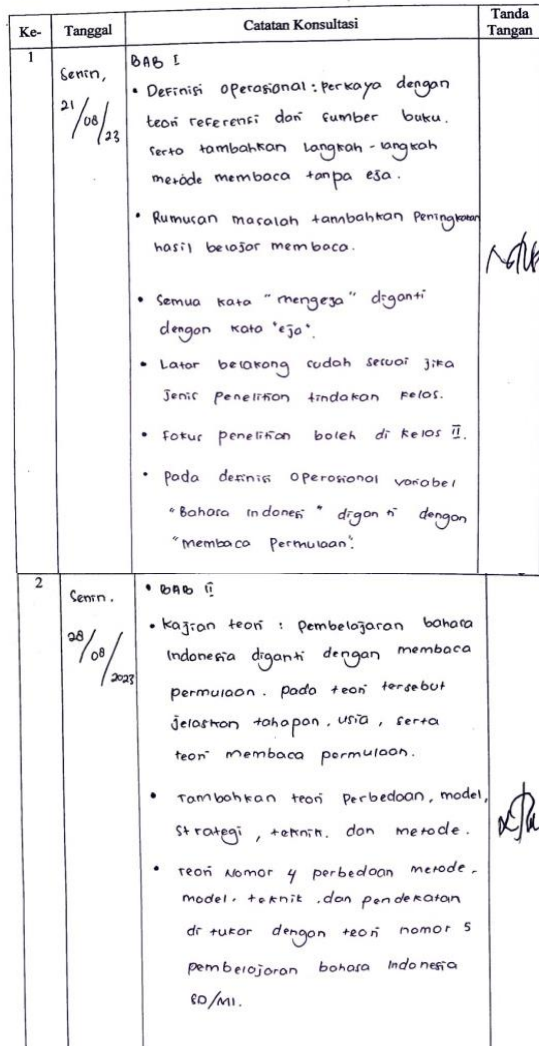 Ke- Tanggal Catatan Konsultasi Tanda Tangan
1
Senin,
21/08/23
BAB I
• Definisi operasional : perkaya dengan
teori referensi dari sumber buku.
serta tambahkan langkah - langkah
metode membaca tanpa eja.
• Rumusan masalah tambahkan Peningkatan
hasil belajar membaca.
• Semua kata "mengeja" diganti
dengan kata "eja".
• Latar belakang sudah sesuai jika
Jenis Penelitian tindakan kelas.
• Fokus penelitian boleh di kelas II.
• Pada definisi operasional variabel
"Bahasa Indonesi" diganti dengan
"membaca Permulaan".
2
Senin.
28/08/2023
• BAB II
• Kajian teori : Pembelajaran bahasa
Indonesia diganti dengan membaca
permulaan. pada teori tersebut
jelaskan tahapan, usia, serta
teori membaca permulaan.
• Tambahkan teori Perbedaan, model,
Strategi, teknik. dan metode.
• Teori Nomor 4 perbedaan metode.
model. teknik .dan pendekatan
di tukar dengan teori nomor 5
pembelajaran bahasa Indonesia
SD/MI.